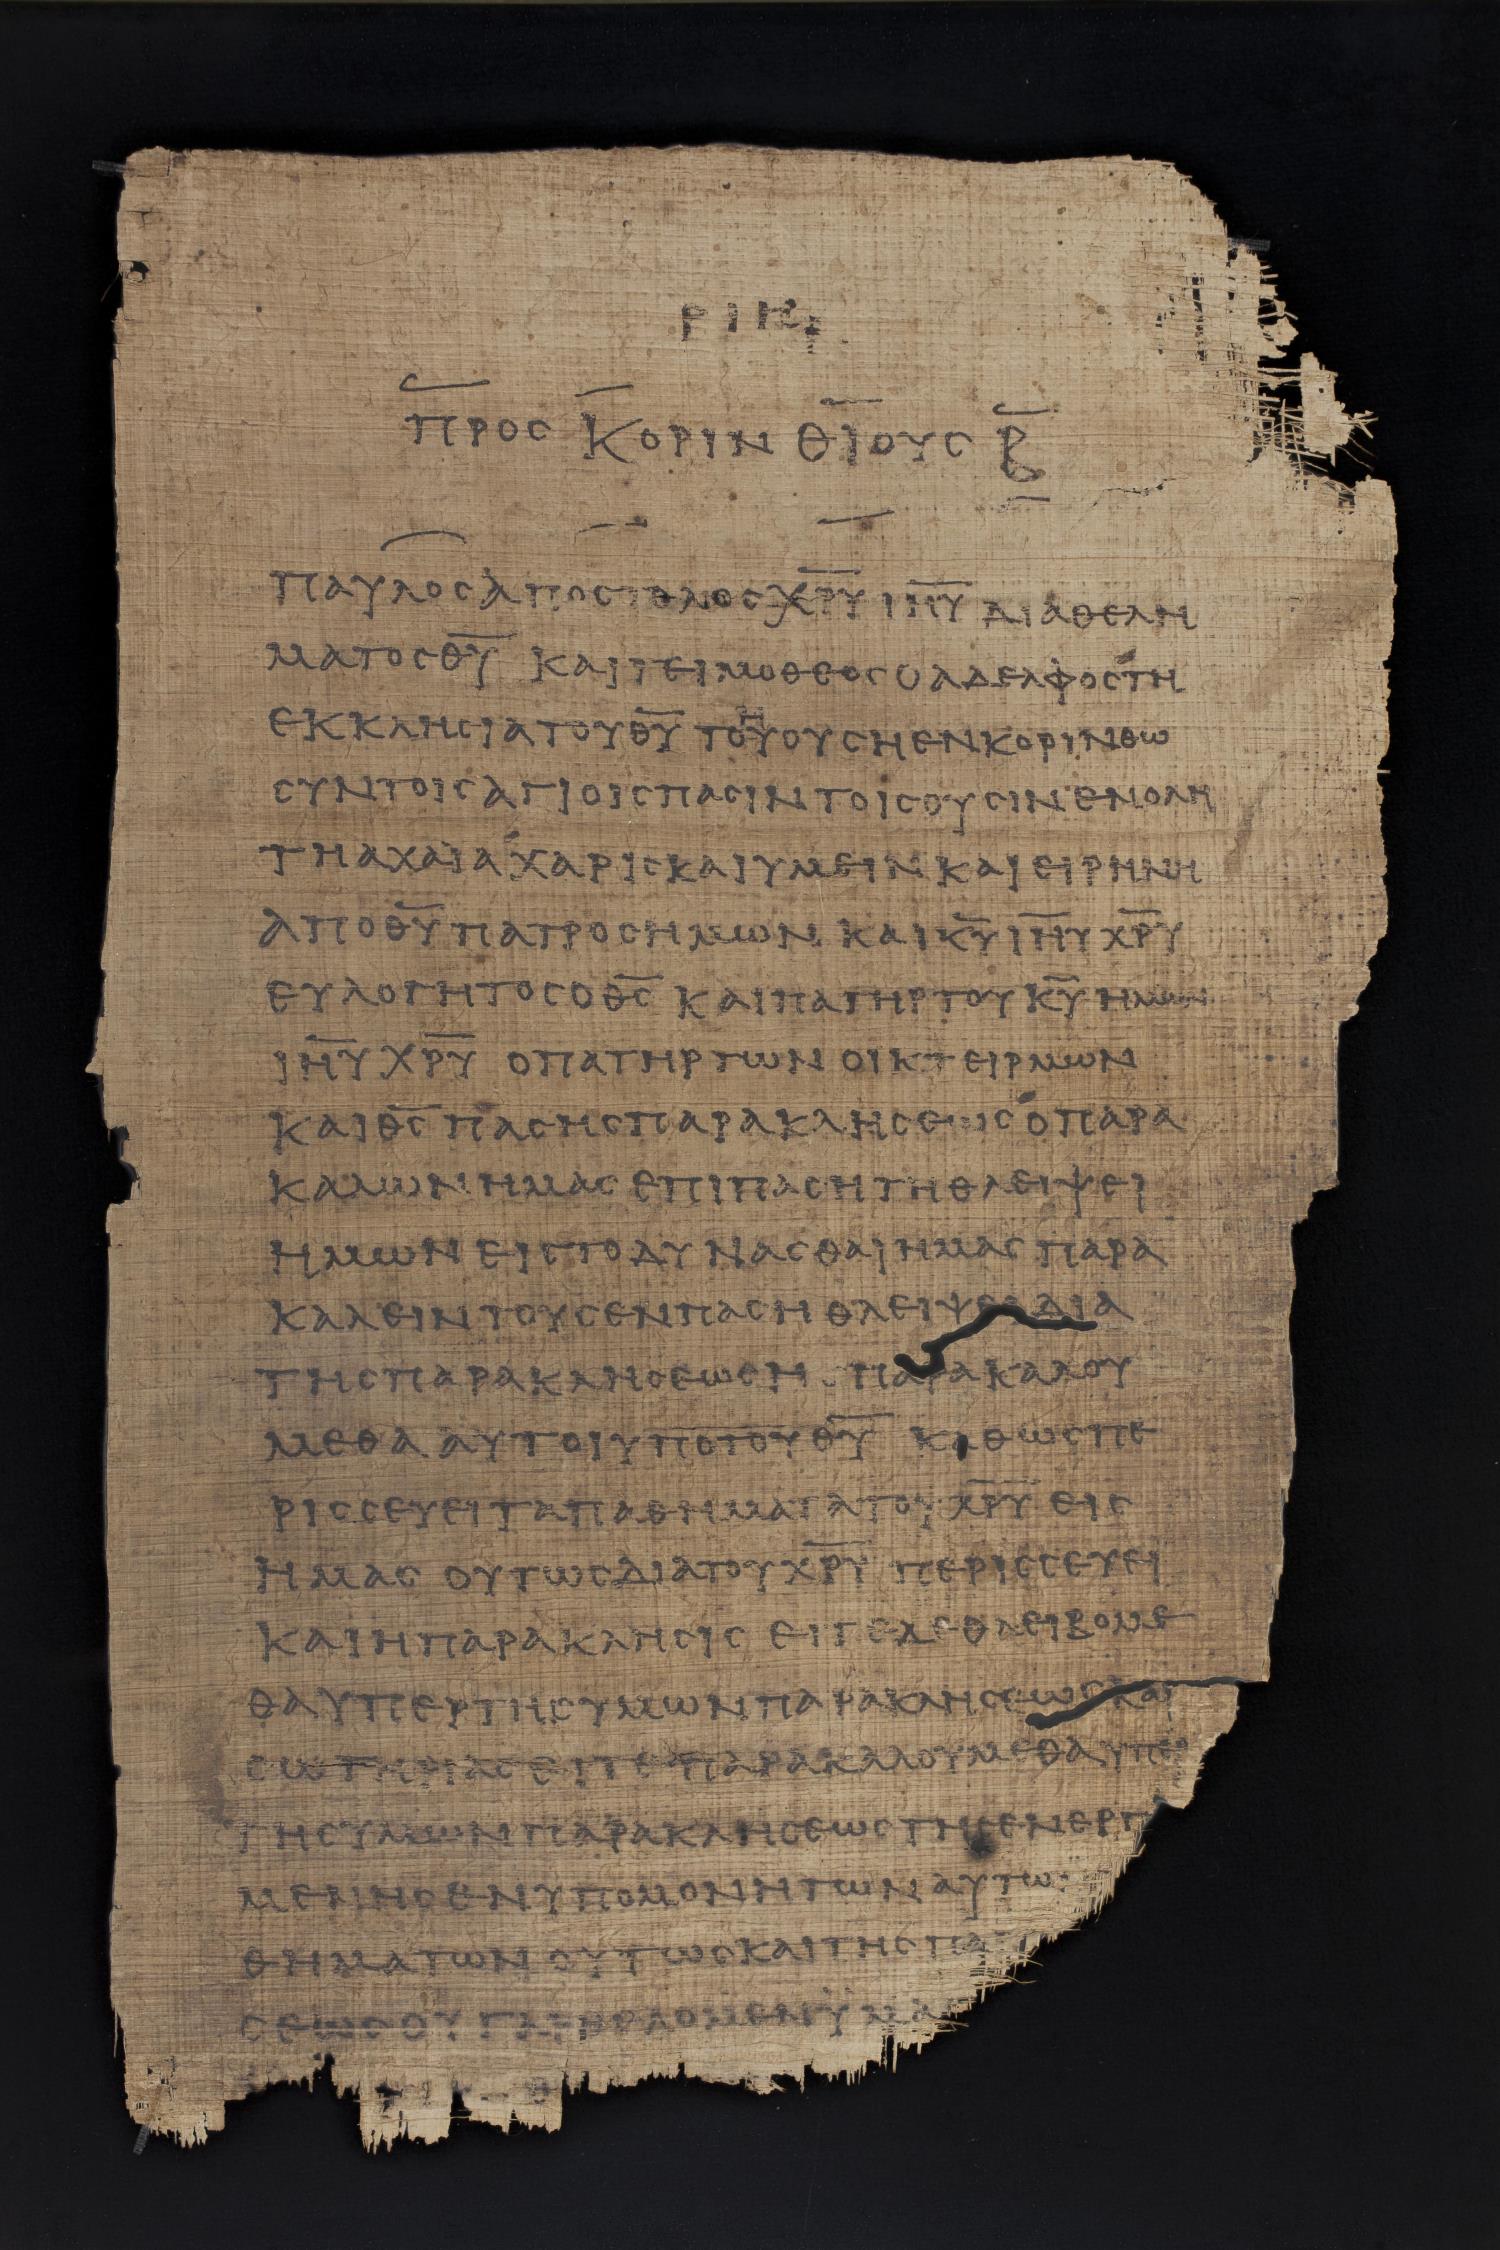 ΡΙΗ
ΠΡΟϹ ΚΟΡΙΝΘΙΟΥϹ Β
ΠΑΥΛΟϹ ΑΠΟϹΤΟΛΟϹ Χ̅Ρ̅Υ̅ Ι̅Η̅Υ̅ ΔΙΑ ΘΕΛΗ
ΜΑΤΟϹ Θ̅Υ̅ ΚΑΙ ΤΕΙΜΟΘΕΟϹ Ο ΑΔΕΛΦΟϹ ΤΗ
ΕΚΚΛΗϹΙΑ ΤΟΥ Θ̅Υ̅ ΤΟΥ ΟΥϹΗ ΕΝ ΚΟΡΙΝΘΩ
ϹΥΝ ΤΟΙϹ ΑΓΙΟΙϹ ΠΑϹΙΝ ΤΟΙϹ ΟΥϹΙΝ ΕΝ ΟΛΗ
ΤΗ ΑΧΑΙΑ ΧΑΡΙϹ ΚΑΙ ΥΜΕΙΝ ΚΑΙ ΕΙΡΗΝΗ
ΑΠΟ Θ̅Υ̅ ΠΑΤΡΟϹ ΗΜΩΝ ΚΑΙ Κ̅Υ̅ Ι̅Η̅Υ̅ Χ̅Ρ̅Υ̅
ΕΥΛΟΓΗΤΟϹ Ο Θ̅Ϲ̅ ΚΑΙ ΠΑΤΗΡ ΤΟΥ Κ̅Υ̅ ΗΜΩΝ
Ι̅Η̅Υ̅ Χ̅Ρ̅Υ̅ Ο ΠΑΤΗΡ ΤΩΝ ΟΙΚΤΕΙΡΜΩΝ
ΚΑΙ Θ̅Ϲ̅ ΠΑϹΗϹ ΠΑΡΑΚΛΗϹΕΩϹ Ο ΠΑΡΑ
ΚΑΛΩΝ ΗΜΑϹ ΕΠΙ ΠΑϹΗ ΤΗ ΘΛΕΙΨΕΙ
ΗΜΩΝ ΕΙϹ ΤΟ ΔΥΝΑϹΘΑΙ ΗΜΑϹ ΠΑΡΑ
ΚΑΛΕΙΝ ΤΟΥϹ ΕΝ ΠΑϹΗ ΘΛΕΙΨΕΙ ΔΙΑ
ΤΗϹ ΠΑΡΑΚΛΗϹΕΩϹ Η ΠΑΡΑΚΑΛΟΥ
ΜΕΘΑ ΑΥΤΟΙ ΥΠΟ ΤΟΥ Θ̅Υ̅ ΚΑΘΩϹ ΠΕ
ΡΙϹϹΕΥΕΙ ΤΑ ΠΑΘΗΜΑΤΑ ΤΟΥ Χ̅Ρ̅Υ̅ ΕΙϹ
ΗΜΑϹ ΟΥΤΩϹ ΔΙΑ ΤΟΥ Χ̅Ρ̅Υ̅ ΠΕΡΙϹϹΕΥΕΙ
ΚΑΙ Η ΠΑΡΑΚΛΗϹΙϹ ΕΙΤΕ ΔΕ ΘΛΕΙΒΟΜΕ
ΘΑ ΥΠΕΡ ΤΗϹ ΥΜΩΝ ΠΑΡΑΚΛΗϹΕΩϹ ΚΑΙ
ϹΩΤΗΡΙΑϹ ΕΙΤΕ ΠΑΡΑΚΑΛΟΥΜΕΘΑ ΥΠΕΡ
ΤΗϹ ΥΜΩΝ ΠΑΡΑΚΛΗϹΕΩϹ ΤΗϹ ΕΝΕΡΓ
ΜΕΝΗϹ ΕΝ ΥΠΟΜΟΝΗ ΤΩΝ ΑΥΤΩ
ΘΗΜΑΤΩΝ ΟΥΤΩϹ ΚΑΙ ΤΗϹ ΠΑ
ϹΕΩϹ ΟΥ ΓΑΡ ΘΕΛΟΜΕΝ ΥΜΑϹ